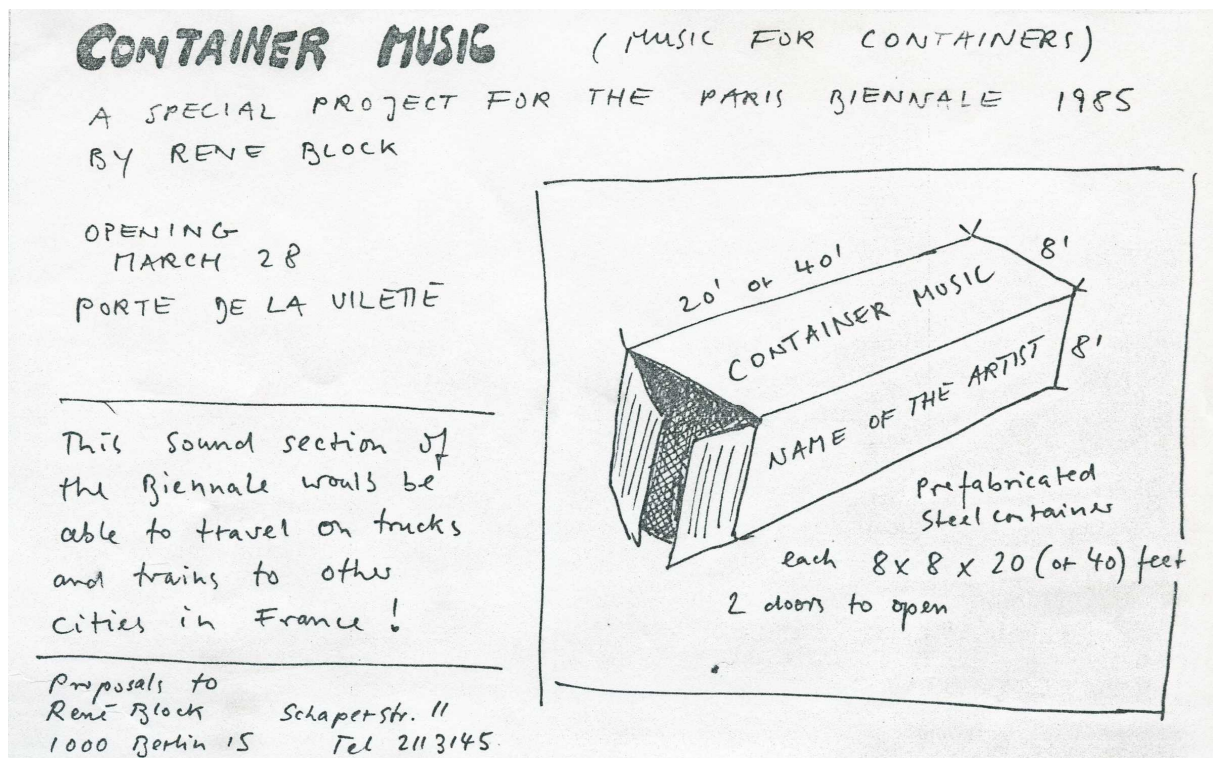 CONTAINER MUSIC (MUSIC FOR CONTAINERS)
A SPECIAL PROJECT FOR THE PARIS BIENNALE 1985
BY RENE BLOCK
OPENING
MARCH 28
PORTE DE LA VILETTE
This sound section of
the Biennale would be
able to travel on trucks
and trains to other
cities in France!
Proposals to
René Block Schaperstr. 11
1000 Berlin 15 Tel 211 3145
20' or 40'
8'
CONTAINER MUSIC
8'
NAME OF THE ARTIST
Prefabricated
Steel container
each 8 x 8 x 20 (or 40) feet
2 doors to open